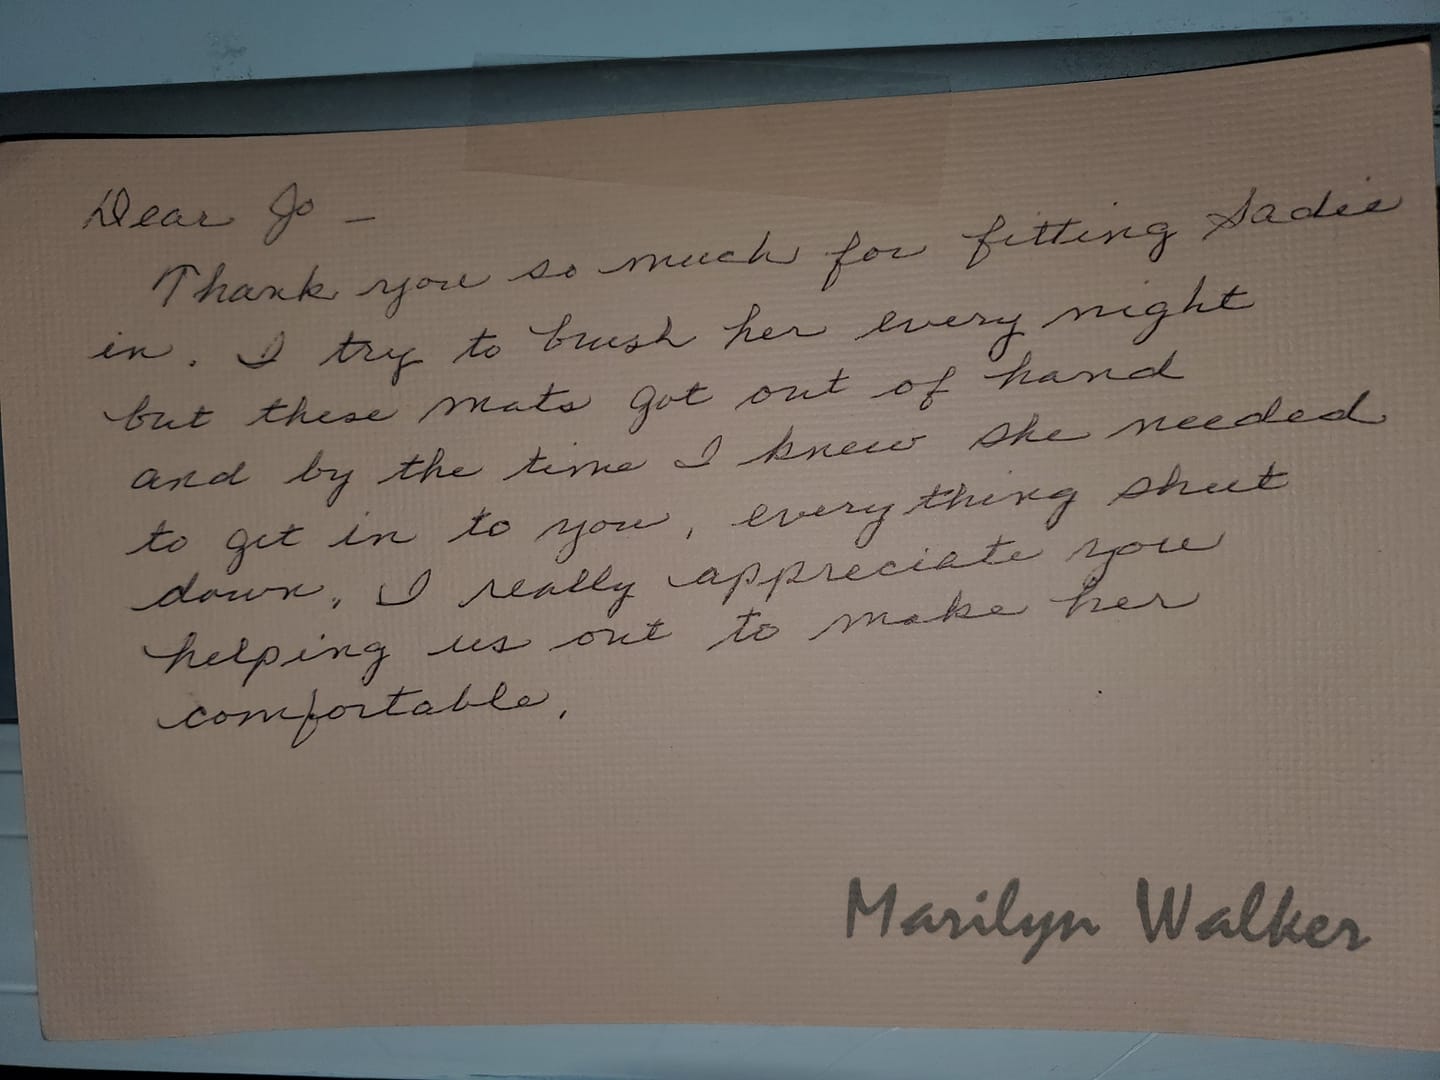 Dear Jo -
Thank you so much for fitting Sadie
in. I try to brush her every night
but these mats got out of hand
and by the time I knew she needed
to get in to you, everything shut
down. I really appreciate you
helping us out to make her
comfortable.
Marilyn Walker